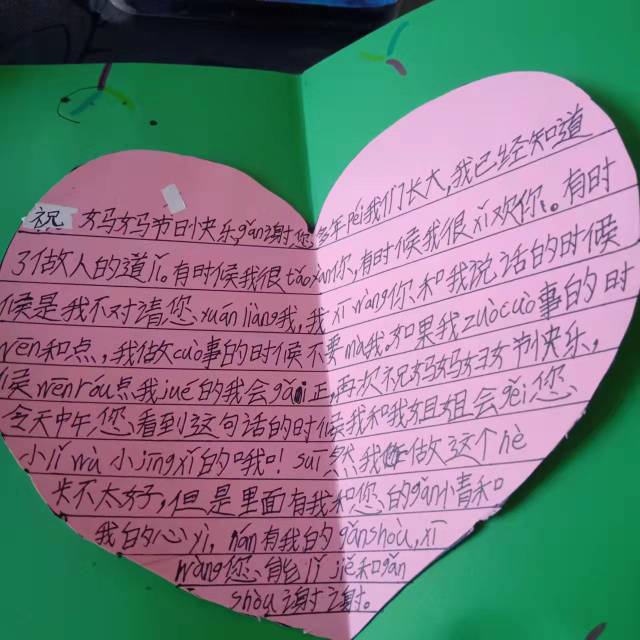 祝妈妈节日快乐,gǎn谢您多年陪我们长大,我已经知道
了做人的道lǐ。有时候我很tǎoyàn你,有时候我很xǐ欢你。有时
候是我不对请您yuán liàng我,我xī wàng你和我说话的时候
wēn和点,我做cuò事的时候不要mà我。如果我zuòcuò事的时
候wēnróu点我jué的我会gǎi正,再次祝妈妈妇女节快乐,
今天中午您看到这句话的时候我和我姐姐会gěi您
小lǐ wù 小jīngxǐ的哦!suī然我做这个hè
卡不太好,但是里面有我和您的gǎn情和
我的心yì,hán有我的gǎnshòu,xī
wàng您能lǐ jiě和gǎn
shòu谢谢。